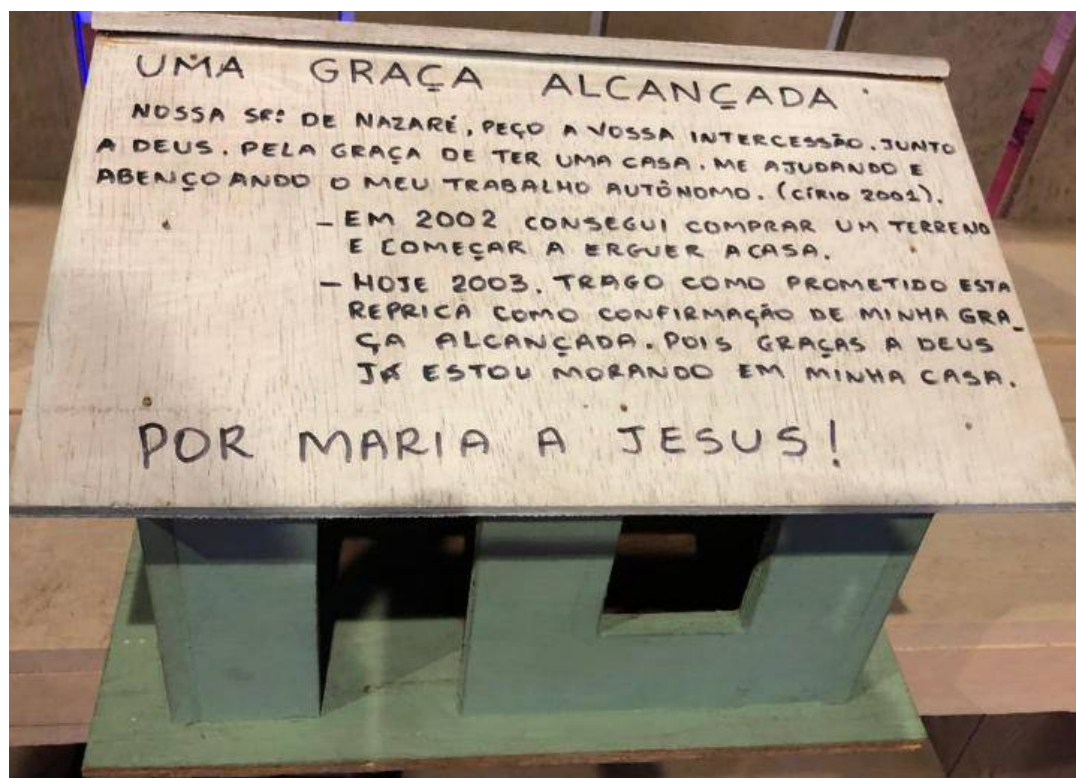 UMA GRAÇA ALCANÇADA
NOSSA SRª DE NAZARÉ, PEÇO A VOSSA INTERCESSÃO. JUNTO
A DEUS. PELA GRAÇA DE TER UMA CASA. ME AJUDANDO E
ABENÇOANDO O MEU TRABALHO AUTÔNOMO. (CÍRIO 2001).
- EM 2002 CONSEGUI COMPRAR UM TERRENO
E COMEÇAR A ERGUER A CASA.
- HOJE 2003. TRAGO COMO PROMETIDO ESTA
REPRICA COMO CONFIRMAÇÃO DE MINHA GRA-
ÇA ALCANÇADA. POIS GRAÇAS A DEUS
JÁ ESTOU MORANDO EM MINHA CASA.
POR MARIA A JESUS!